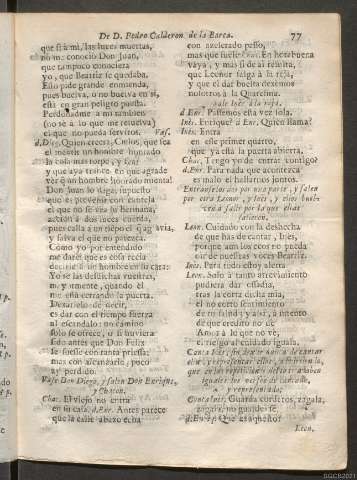 De D. Pedro Calderon de la Barca. 77
que si à mi, las luces muertas,
no me conociò Don Juan,
que tampoco conociera
yo, que Beatriz se quedaba.
Esso pide grande enmienda,
pues buelva, ò no buelva en sì,
està en gran peligro puesta.
Perdonadme à mi tambien
(no sè à lo que me resuelva)
el que no pueda serviros. Vas.
d. Dieg. Quien creerà, Cielos, que sea
el mentir un hombre honrado
la cosa mas torpe, y
y que aya trance en que agrade
ver que un hombre honrado mienta!
Don Juan lo diga, supuesto
que es prevenir con cautela
el que no se vea su hermana,
accion à dos luces cuerda,
pues calla à un tiempo el agravio,
y salva el que no parezca.
Como yo por entendido
me darè que es cosa recia
decirle à un hombre en su cara:
Yo sè las desdichas vuestras,
y mente, quando èl
me està cerrando la puerta.
Dexarlo de decir,
es dar con el tiempo fuerza
al escandalo: no camino
solo se ofrece, si supiera
sido antes que Don Felix
se fuesse con tanta priessa:
mas con alcanzarle, poco
ay perdido.
Vase Don Diego, y salen Don Enrique,
y Chacon.
Chac. El viejo no entra
en su casa. d. Enr. Antes parece
que la calle abaxo echa
con acelerado passo,
mas que suele. En hora buena
vaya, y mas si de ai resulta,
que Leonor salga à la reja,
y que el dar buelta dexèmos
nosotros à la Quaresma.
sale Inès à la reja.
d. Enr. Passemos esta vez sola.
Inès. Enrique? d. Enr. Quien llama?
Inès. Entra
en esse primer quarto,
que ya està la puerta abierta.
Chac. Tengo yo de entrar contigo?
d. Enr. Para nada que acontezca
es malo el hallarnos juntos.
Entranse los dos por una parte, y salen
por otra Leonor, y Inès, y ellos buelven
à salir por la que ellas
salieron.
Leon. Cuidado con la deshecha
de que has de cantar, Inès,
porque aun los ecos no pueda
oìr de nuestras voces Beatriz.
Inès. Para todo estoy alerta.
Leon. Solo à tanto atrevimiento
pudiera dar ossadia,
tras la corta dicha mia,
el no cierto sentimiento
de tu saña; y assi, à intento
de que credito no dè
Amor à lo que no vè,
el riesgo al cuidado iguala.
Guarda corderos, zagala,
zagala, no guardes fè,
d. Enriq. Que
Leon.
SGCB2021